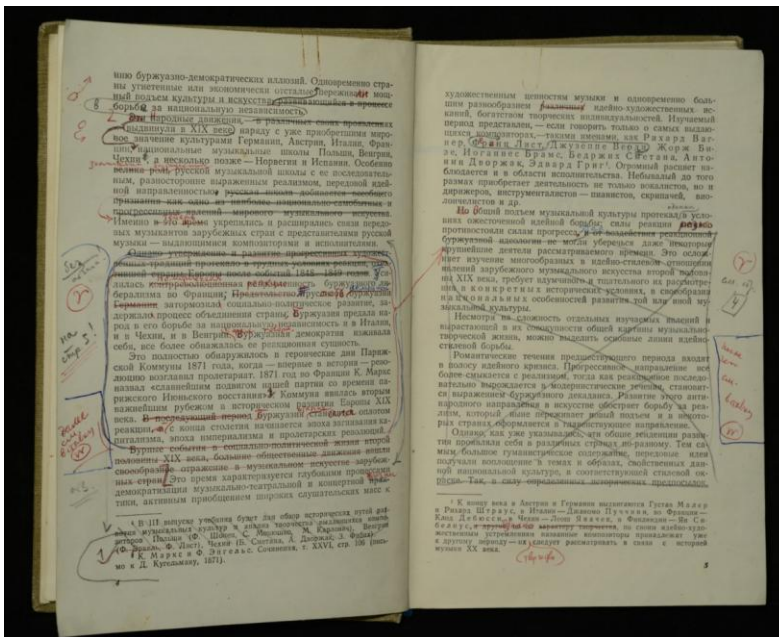 нию буржуазно-демократических иллюзий. Одновременно стра-
ны угнетенные или экономически отсталые переживали мощ-
ный подъем культуры и искусства, развивающейся в процессе
борьбы за национальную независимость.
народные движения, — в различных своих проявлениях
выдвинули в XIX веке, наряду с уже приобретшими миро-
вое значение культурами Германии, Австрии, Италии, Фран-
ции, национальные музыкальные школы Польши, Венгрии,
Чехии, а несколько позже — Норвегии и Испании. Особенно
велика роль русской музыкальной школы с ее последователь-
ным, разносторонне выраженным реализмом, передовой идей-
ной направленностью; русская школа добивается всеобщего
признания как одно из наиболее национально-самобытных и
прогрессивных явлений мирового музыкального искусства.
Именно в это время укрепились и расширились связи передо-
вых музыкантов зарубежных стран с представителями русской
музыки — выдающимися композиторами и исполнителями.
Однако утверждение и развитие прогрессивных художест-
венных традиций протекало в трудных условиях реакции,
странах Европы после событий 1848—1849 годов. Уси-
лилась контрреволюционная буржуазного ли-
берализма во Франции; Предательство прусской буржуазии
Германии затормозило социально-политическое развитие, за-
держало процесс объединения страны. Буржуазия предала на-
род в его борьбе за национальную независимость и в Италии,
и в Чехии, и в Венгрии. Буржуазная демократия изживала
себя, все более обнажалась ее реакционная сущность.
Это полностью обнаружилось в героические дни Париж-
ской Коммуны 1871 года, когда — впервые в истории — рево-
люцию возглавил пролетариат. 1871 год во Франции К. Маркс
назвал «славнейшим подвигом нашей партии со времени па-
рижского Июньского восстания». Коммуна явилась вторым
важнейшим рубежом в историческом развитии Европы XIX
века. В последующий период буржуазия становится оплотом
реакции, с конца столетия начинается эпоха загнивания ка-
питализма, эпоха империализма и пролетарских революций.
Бурные события в социально-политической жизни второй
половины XIX века, большие общественные движения нашли
своеобразное отражение в музыкальном искусстве зарубеж-
ных стран. Это время характеризуется глубокими процессами
демократизации музыкально-театральной и концертной прак-
тики, активным приобщением широких слушательских масс к
¹ В III выпуске учебника будет дан обзор исторических путей раз-
вития музыкальных культур и анализ творчества виднейших компо-
зиторов Польши (Ф. Шопен, С. Монюшко, М. Карлович), Венгрии
(Ф. Эркель, Ф. Лист), Чехии (Б. Сметана, А. Дворжак, З. Фибих).
К. Маркс и Ф. Энгельс. Сочинения, т. XXVI, стр. 106 (пись-
мо к Л. Кугельману, 1871).
на
стр 5!
художественным ценностям музыки и одновременно боль-
шим разнообразием различных идейно-художественных ис-
каний, богатством творческих индивидуальностей. Изучаемый
период представлен, — если говорить только о самых выдаю-
щихся композиторах, — такими именами, как Рихард Ваг-
нер, Франц Лист, Джузеппе Верди, Жорж Би-
зе, Иоганнес Брамс, Бедржих Сметана, Анто-
нин Дворжак, Эдвард Григ¹. Огромный расцвет на-
блюдается и в области исполнительства. Небывалый до того
размах приобретает деятельность не только вокалистов, но и
дирижеров, инструменталистов — пианистов, скрипачей, вио-
лончелистов и др.
Но общий подъем музыкальной культуры протекал в усло-
виях ожесточенной идейной борьбы: силы реакции
противостояли силам прогресса, и от воздействия реакционной
буржуазной идеологии не могли уберечься даже некоторые
крупнейшие деятели рассматриваемого времени. Это ослож-
няет изучение многообразных в идейно-стилевом отношении
явлений зарубежного музыкального искусства второй полови-
ны XIX века, требует вдумчивого и тщательного их рассмотре-
ния в конкретных исторических условиях, в своеобразии
национальных особенностей развития той или иной му-
зыкальной культуры.
Несмотря на сложность отдельных изучаемых явлений и
вырастающей в их совокупности общей картины музыкально-
творческой жизни, можно выделить основные линии идейно-
стилевой борьбы.
Романтические течения предшествующего периода входят
в полосу идейного кризиса. Прогрессивное направление все
более смыкается с реализмом, тогда как реакционное последо-
вательно вырождается в модернистические течения, становит-
ся выражением буржуазного декаданса. Развитие этого анти-
народного направления в искусстве обостряет борьбу за реа-
лизм, который ныне переживает новый подъем и в некото-
рых странах оформляется в главенствующее направление.
Однако, как уже указывалось, эти общие тенденции разви-
тия проявляли себя в различных странах по-разному. Тем са-
мым большое гуманистическое содержание, передовые идеи
получали воплощение в темах и образах, свойственных дан-
ной национальной культуре, и в соответствующей стилевой ок-
раске. Так, в силу определенных исторических предпосылок,
¹ К концу века в Австрии и Германии выдвигаются Густав Малер
и Рихард Штраус, в Италии — Джакомо Пуччини, во Франции —
Клод Дебюсси, в Чехии — Леош Яначек, в Финляндии — Ян Си-
белиус, и другие, но по характеру творчества, по своим идейно-худо-
жественным устремлениям названные композиторы принадлежат уже
к другому периоду — их следует рассматривать в связи с историей
музыки XX века.
5